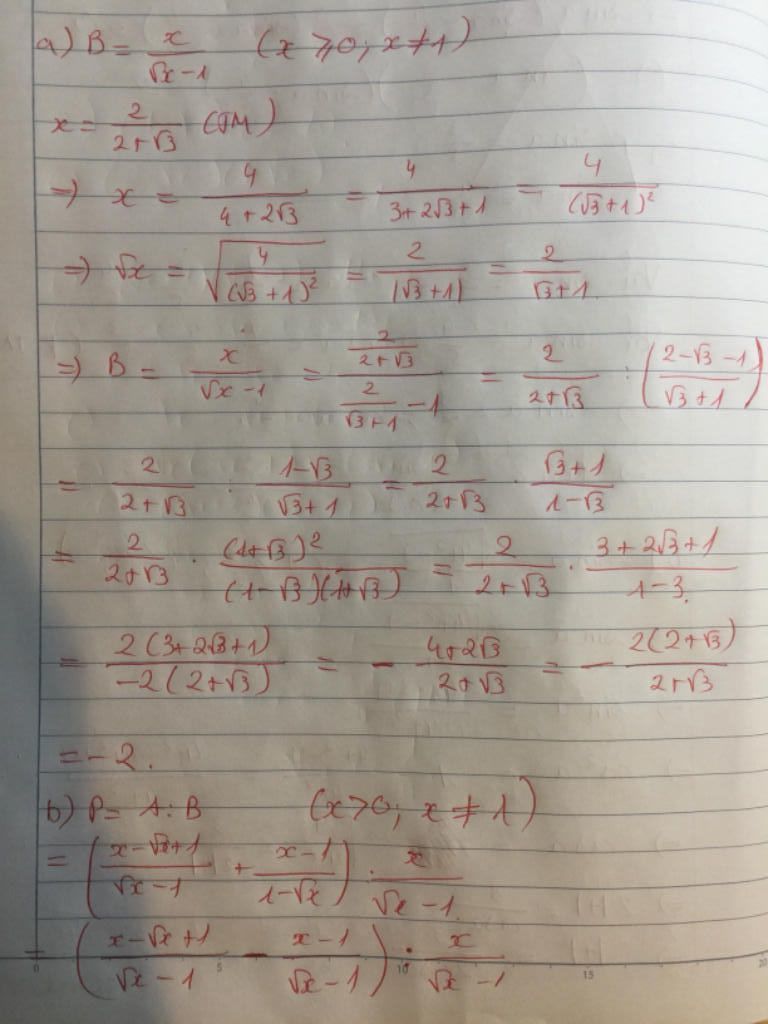 a) B = x/(√x-1) (x ≥ 0; x ≠ 1)
x = 2/(2+√3) (TM)
=> x = 4/(4+2√3) = 4/(3+2√3+1) = 4/(√3+1)²
=> √x = √(4/(√3+1)²) = 2/|√3+1| = 2/(√3+1)
=> B = x/(√x-1) = (2/(2+√3))/(2/(√3+1) - 1) = 2/(2+√3) : ((2-√3-1)/(√3+1))
= 2/(2+√3) : (1-√3)/(√3+1) = 2/(2+√3) . (√3+1)/(1-√3)
= 2/(2+√3) . (1+√3)²/((1-√3)(1+√3)) = 2/(2+√3) . (3+2√3+1)/(1-3)
= 2(3+2√3+1)/(-2(2+√3)) = - (4+2√3)/(2+√3) = - 2(2+√3)/(2+√3)
= -2.
b) P = A : B (x>0; x ≠ 1)
= ((x-√x+1)/(√x-1) + (x-1)/(1-√x)) : x/(√x-1)
= ((x-√x+1)/(√x-1) - (x-1)/(√x-1)) : x/(√x-1)
0 5 10 15 20